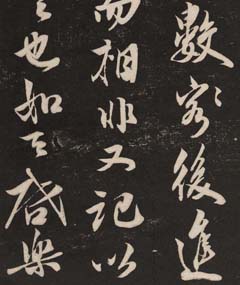 數客後進
而相非又記以
也如天啓樂